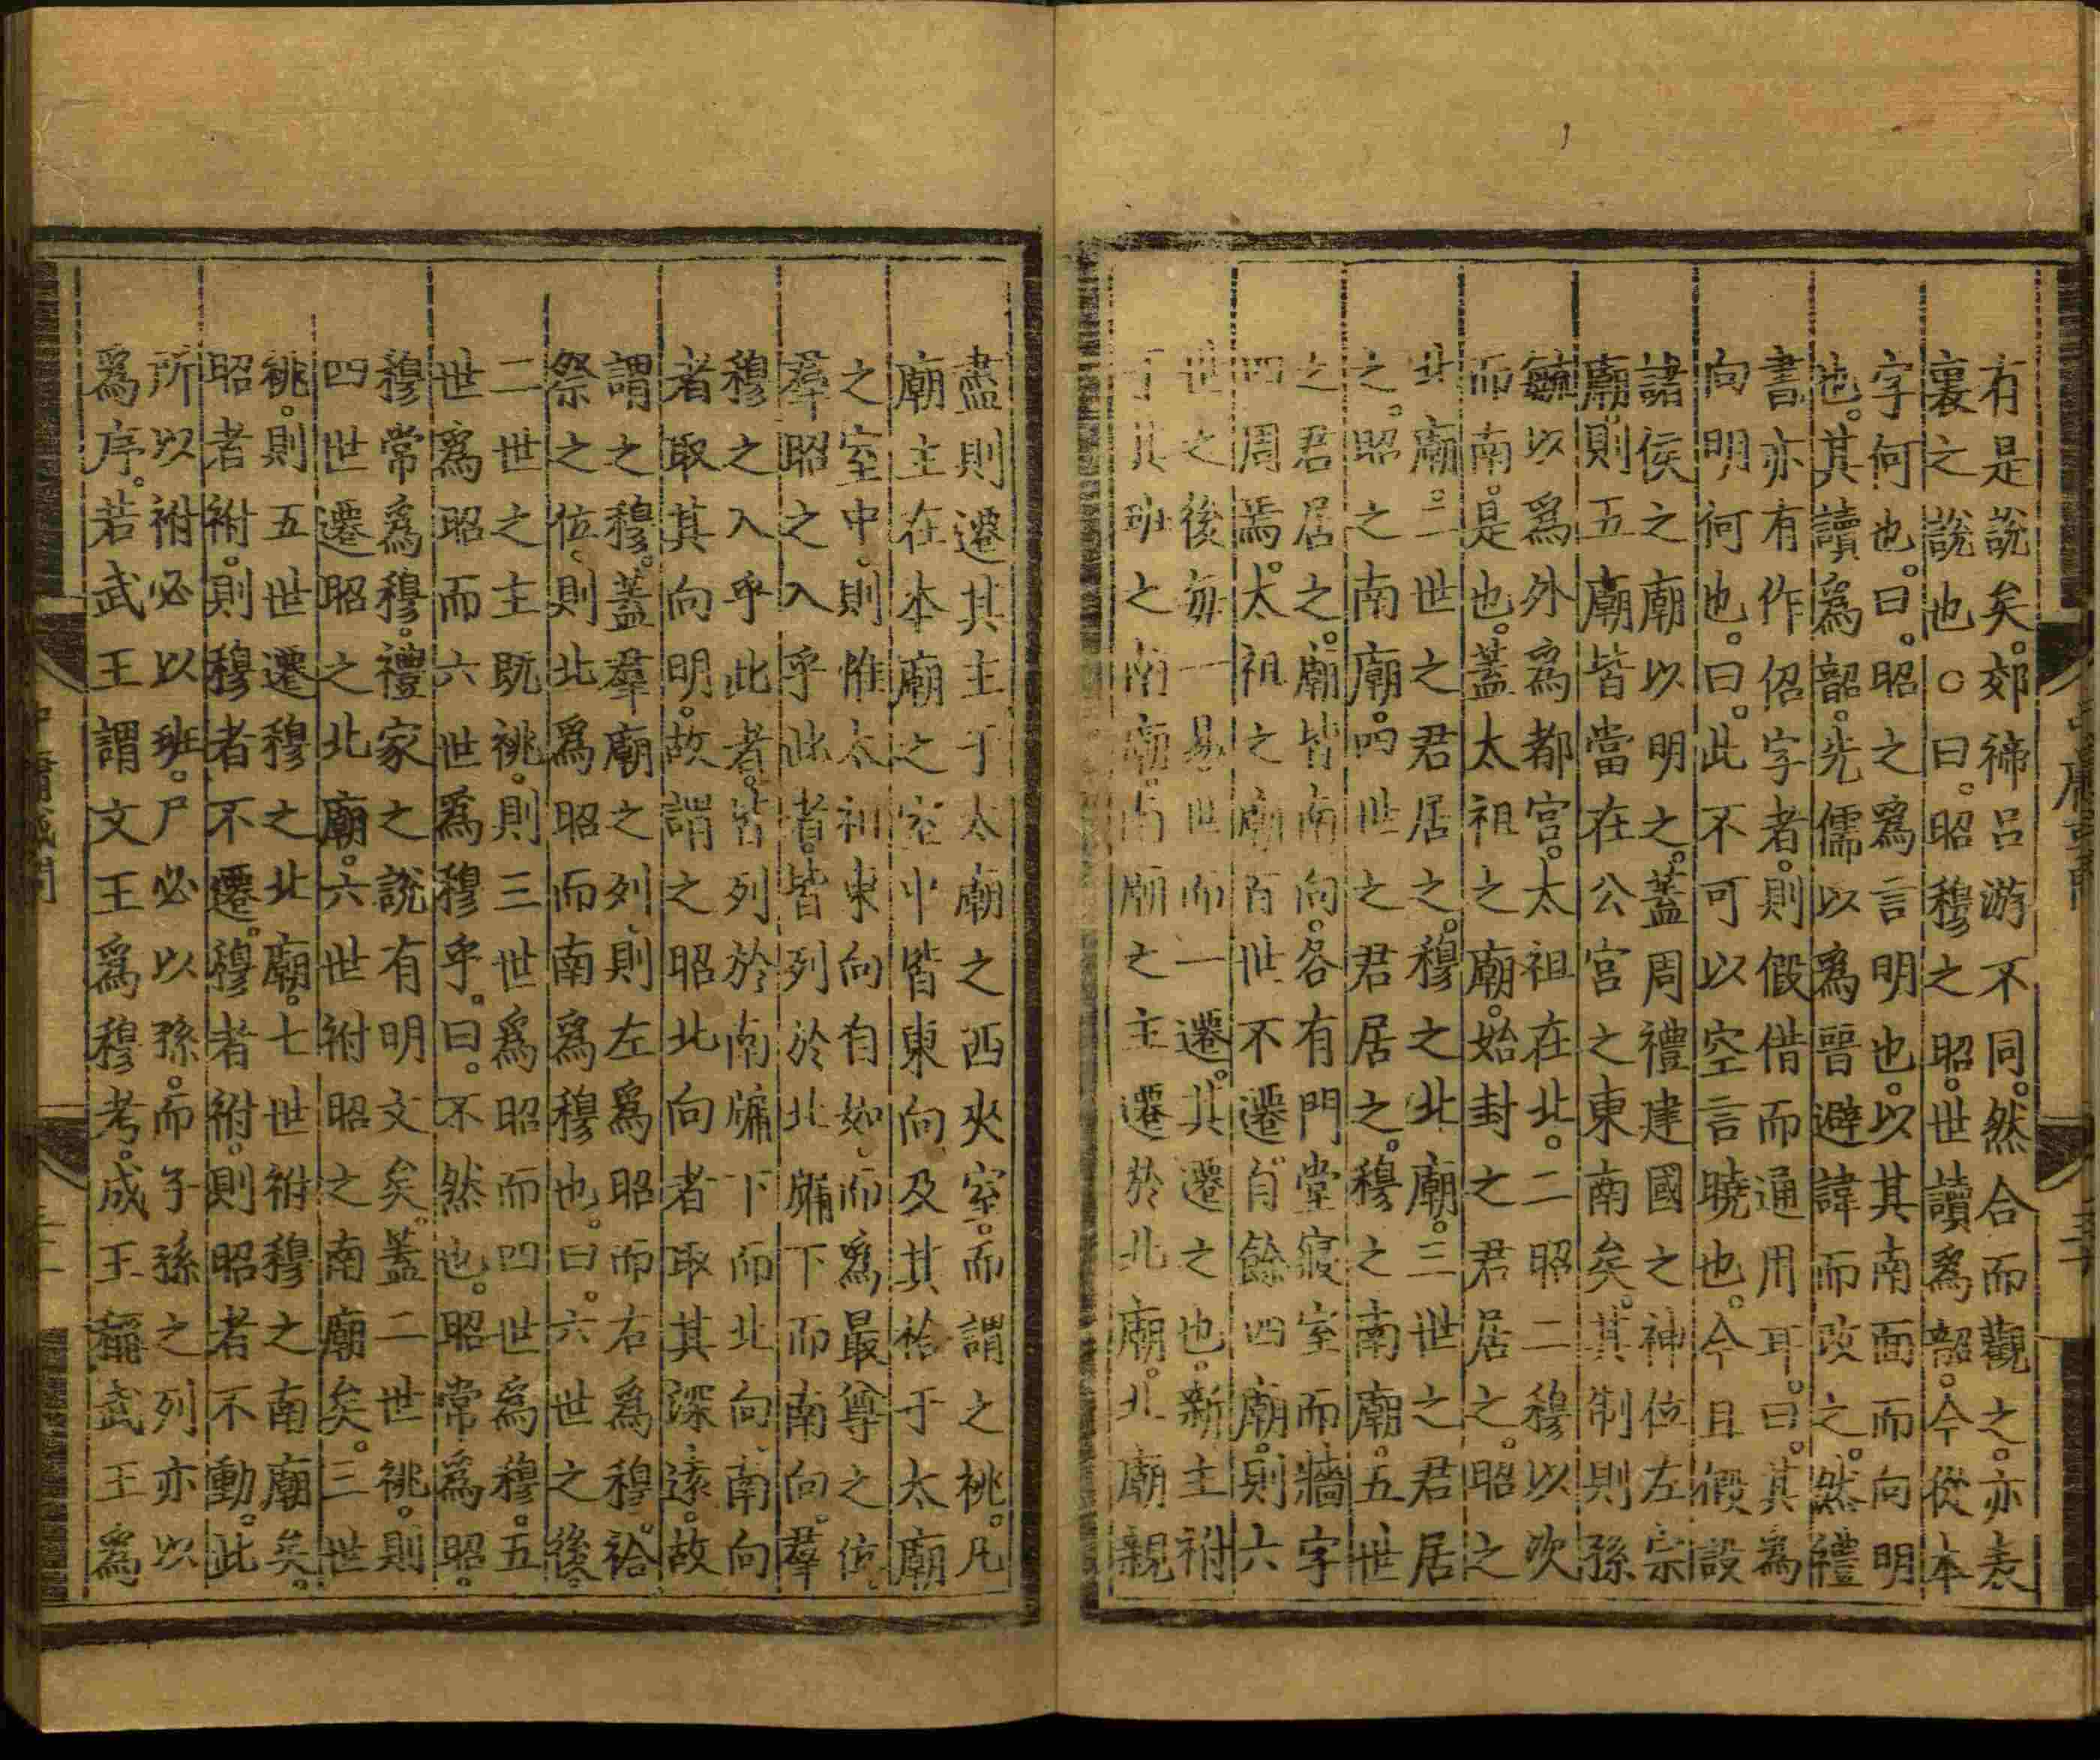 有是說矣。郊禘呂游不同。然合而觀之。亦表
裏之說也○曰。昭穆之昭。世讀爲韶。今從本
字何也。曰。昭之爲言明也。以其南面而向明
也。其讀爲韶。先儒以爲晉避諱而改之。然禮
書亦有作佋字者。則假借而通用耳。曰。其爲
向明何也。曰。此不可以空言曉也。今且假設
諸侯之廟以明之。蓋周禮建國之神位左宗
廟則五廟皆當在公宮之東南矣。其制則孫
毓以爲外爲都宮。太祖在北。二昭二穆以次
而南。是也。蓋太祖之廟。始封之君居之。昭之
北廟。二世之君居之。穆之北廟。三世之君居
之。昭之南廟。四世之君居之。穆之南廟。五世
之君居之。廟皆南向。各有門堂寢室而牆宇
四周焉。太祖之廟百世不遷。自餘四廟。則六
世之後每一易世而一遷。其遷之也。新主祔
于其班之南廟。南廟之主遷於北廟。北廟親
盡則遷其主于太廟之西夾室。而謂之祧。凡
廟主在本廟之室中皆東向及其祫于太廟
之室中。則惟太祖東向自如。而爲最尊之位。
羣昭之入乎此者。皆列於北牖下而南向。羣
穆之入乎此者。皆列於南牖下而北向。南向
者取其向明。故謂之昭北向者取其深遠。故
謂之穆。蓋羣廟之列。則左爲昭而右爲穆。祫
祭之位。則北爲昭而南爲穆也。曰。六世之後。
二世之主既祧。則三世爲昭而四世爲穆。五
世爲昭而六世爲穆乎。曰。不然也。昭常爲昭。
穆常爲穆。禮家之說有明文矣。蓋二世祧。則
四世遷昭之北廟。六世祔昭之南廟矣。三世
祧。則五世遷穆之北廟。七世祔穆之南廟矣。
昭者祔。則穆者不遷。穆者祔。則昭者不動。此
所以祔必以班。尸必以孫。而子孫之列亦以
爲序。若武王謂文王爲穆考。成王稱武王爲